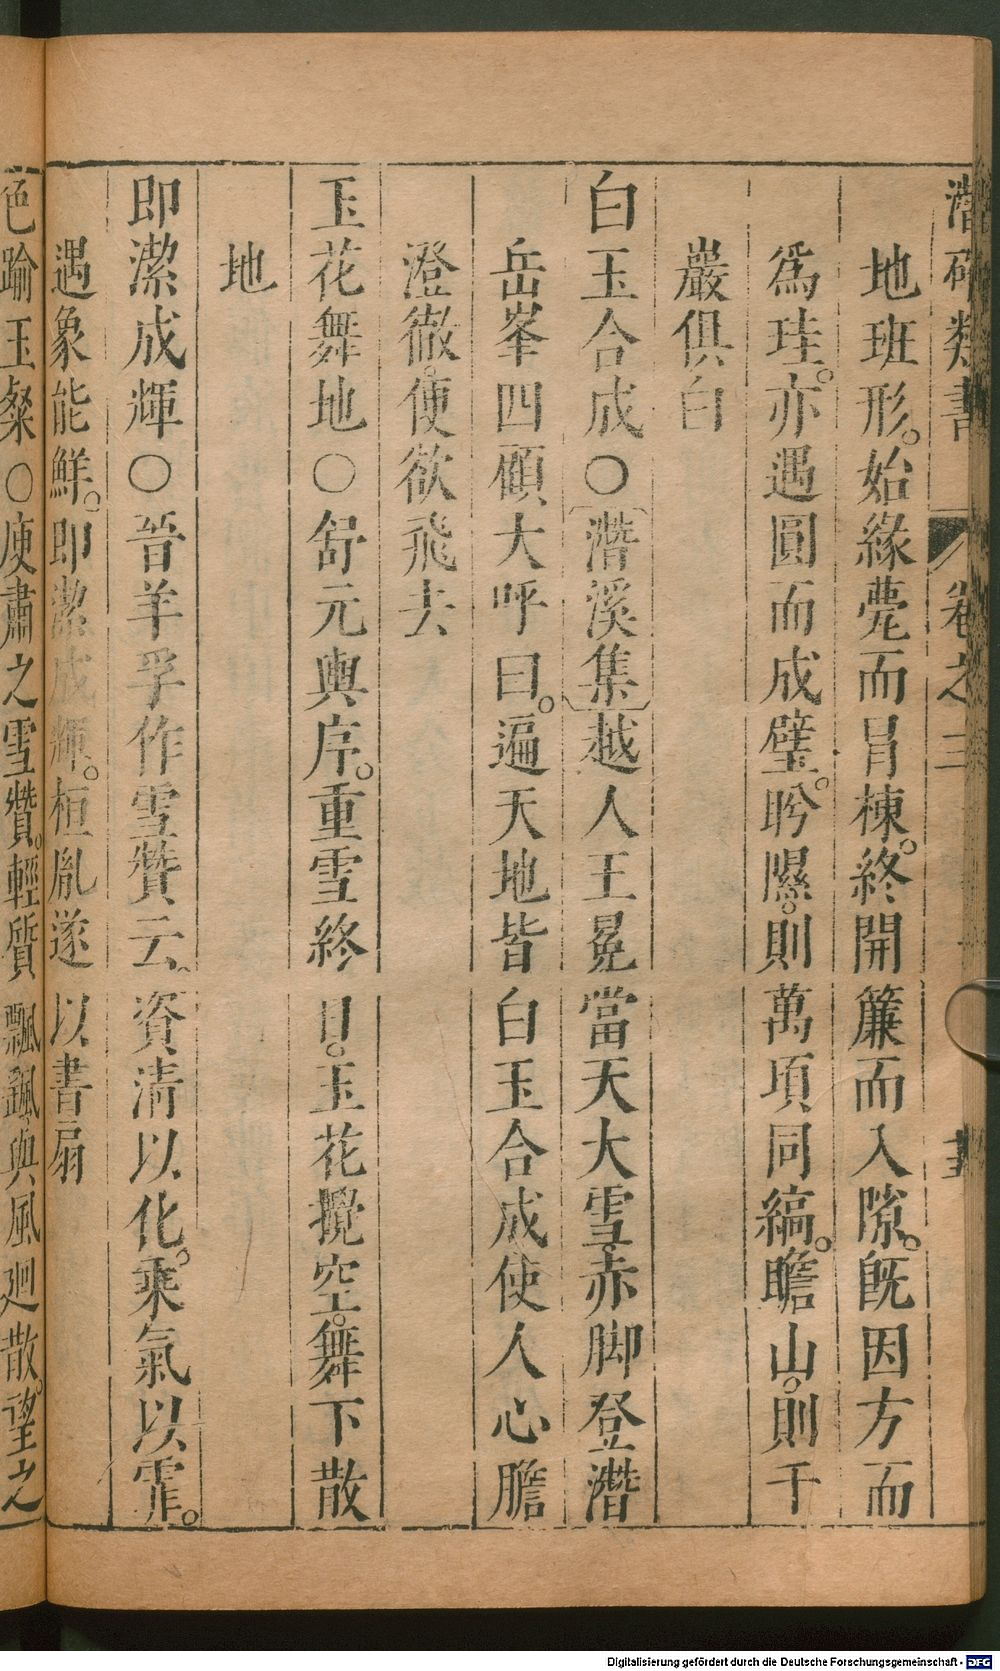 潛確類書 卷之三
地班形。始緣甍而冒棟。終開簾而入隙。旣因方而
爲珪。亦遇圓而成璧。眄隰。則萬項同縞。瞻山。則千
巖俱白
白玉合成○潛溪集越人王冕當天大雪。赤脚登潛
岳峯四顧大呼曰。遍天地皆白玉合成使人心膽
澄徹。便欲飛去
玉花舞地○舒元輿序。重雪終日。玉花攪空。舞下散
地
即潔成輝○晉羊孚作雪贊云。資清以化。乘氣以霏。
遇象能鮮。即潔成輝。桓胤遂以書扇
色踰玉粲○庾肅之雪贊。輕質飄颻與風廻散。望之
Digitalisierung gefördert durch die Deutsche Forschungsgemeinschaft - DFG